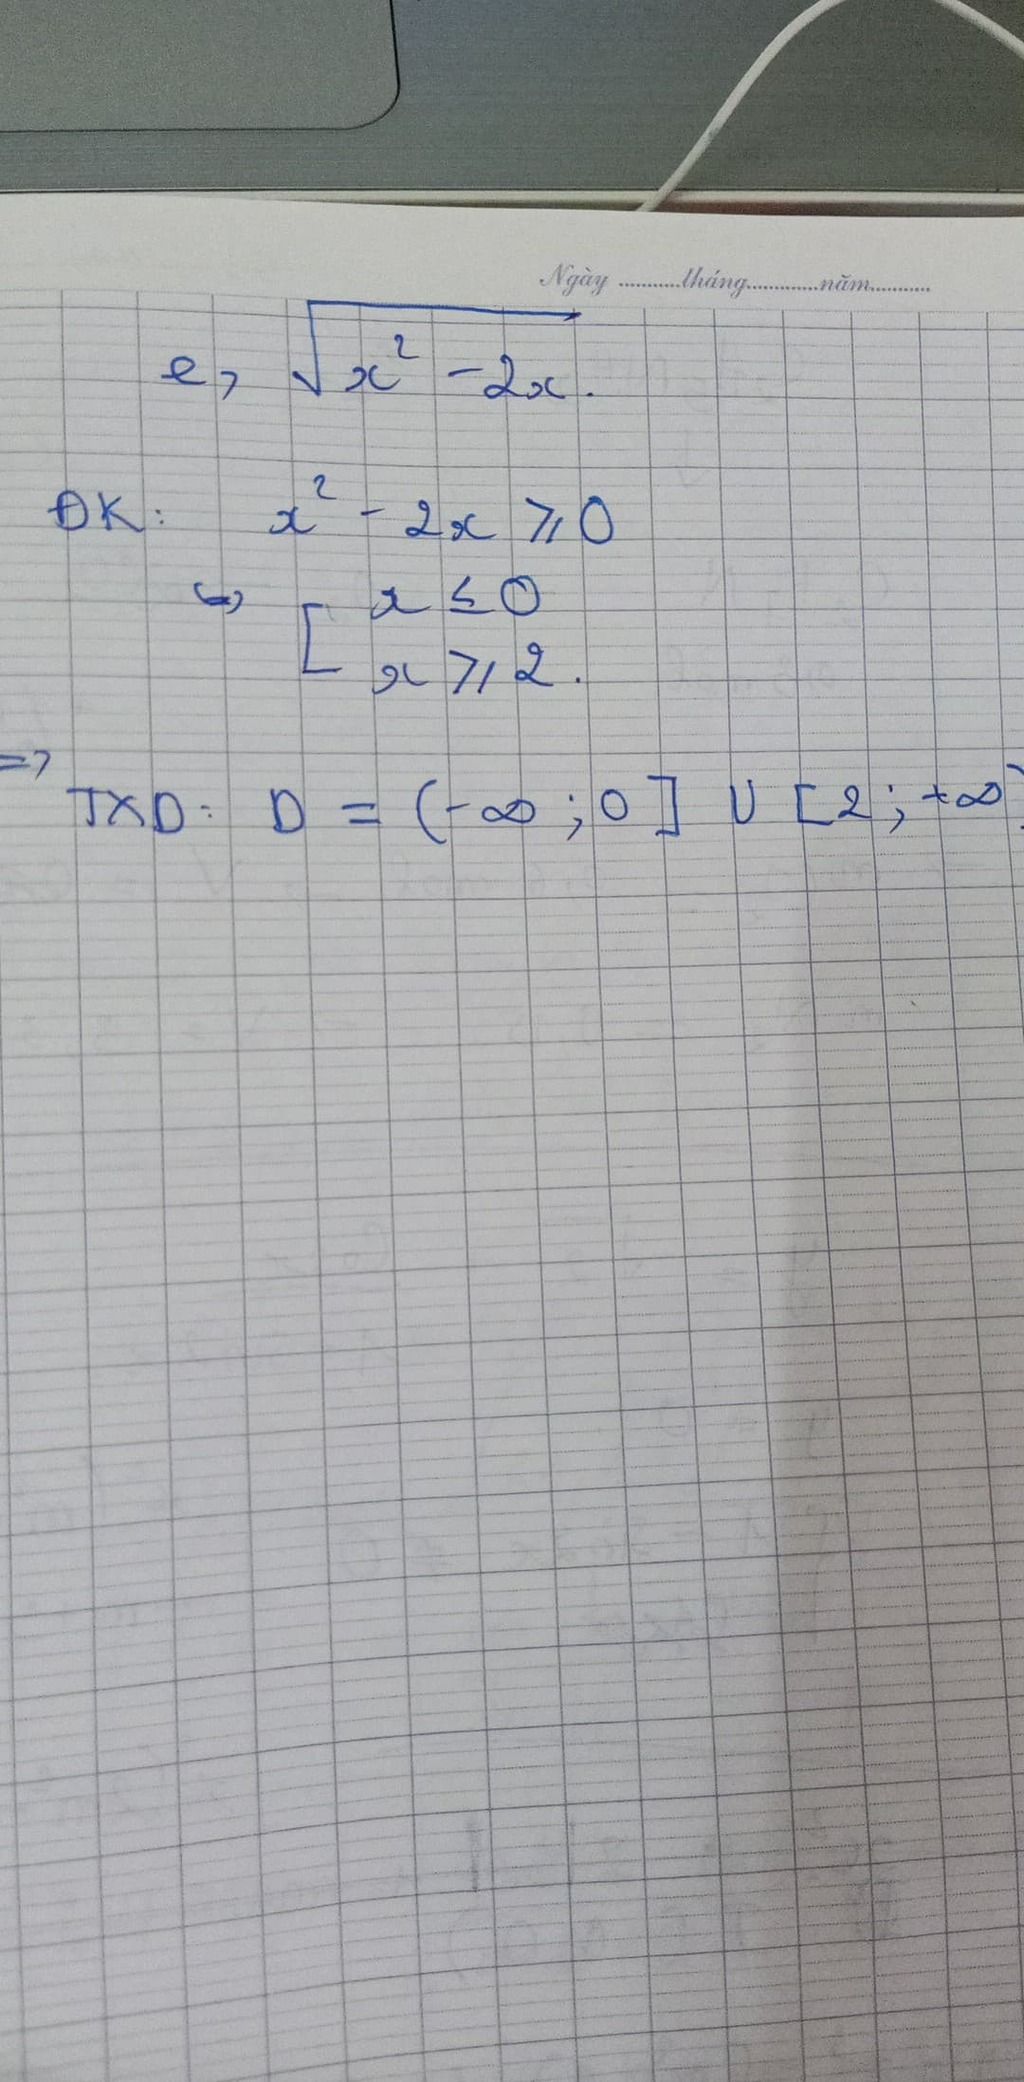 Ngày ...........tháng.............năm...........
e, √x² - 2x.
ĐK: x² - 2x ⩾ 0
↪ [ x ≤ 0
x ⩾ 2.
=>
TXD: D = (-∞ ; 0] ∪ [2 ; +∞)